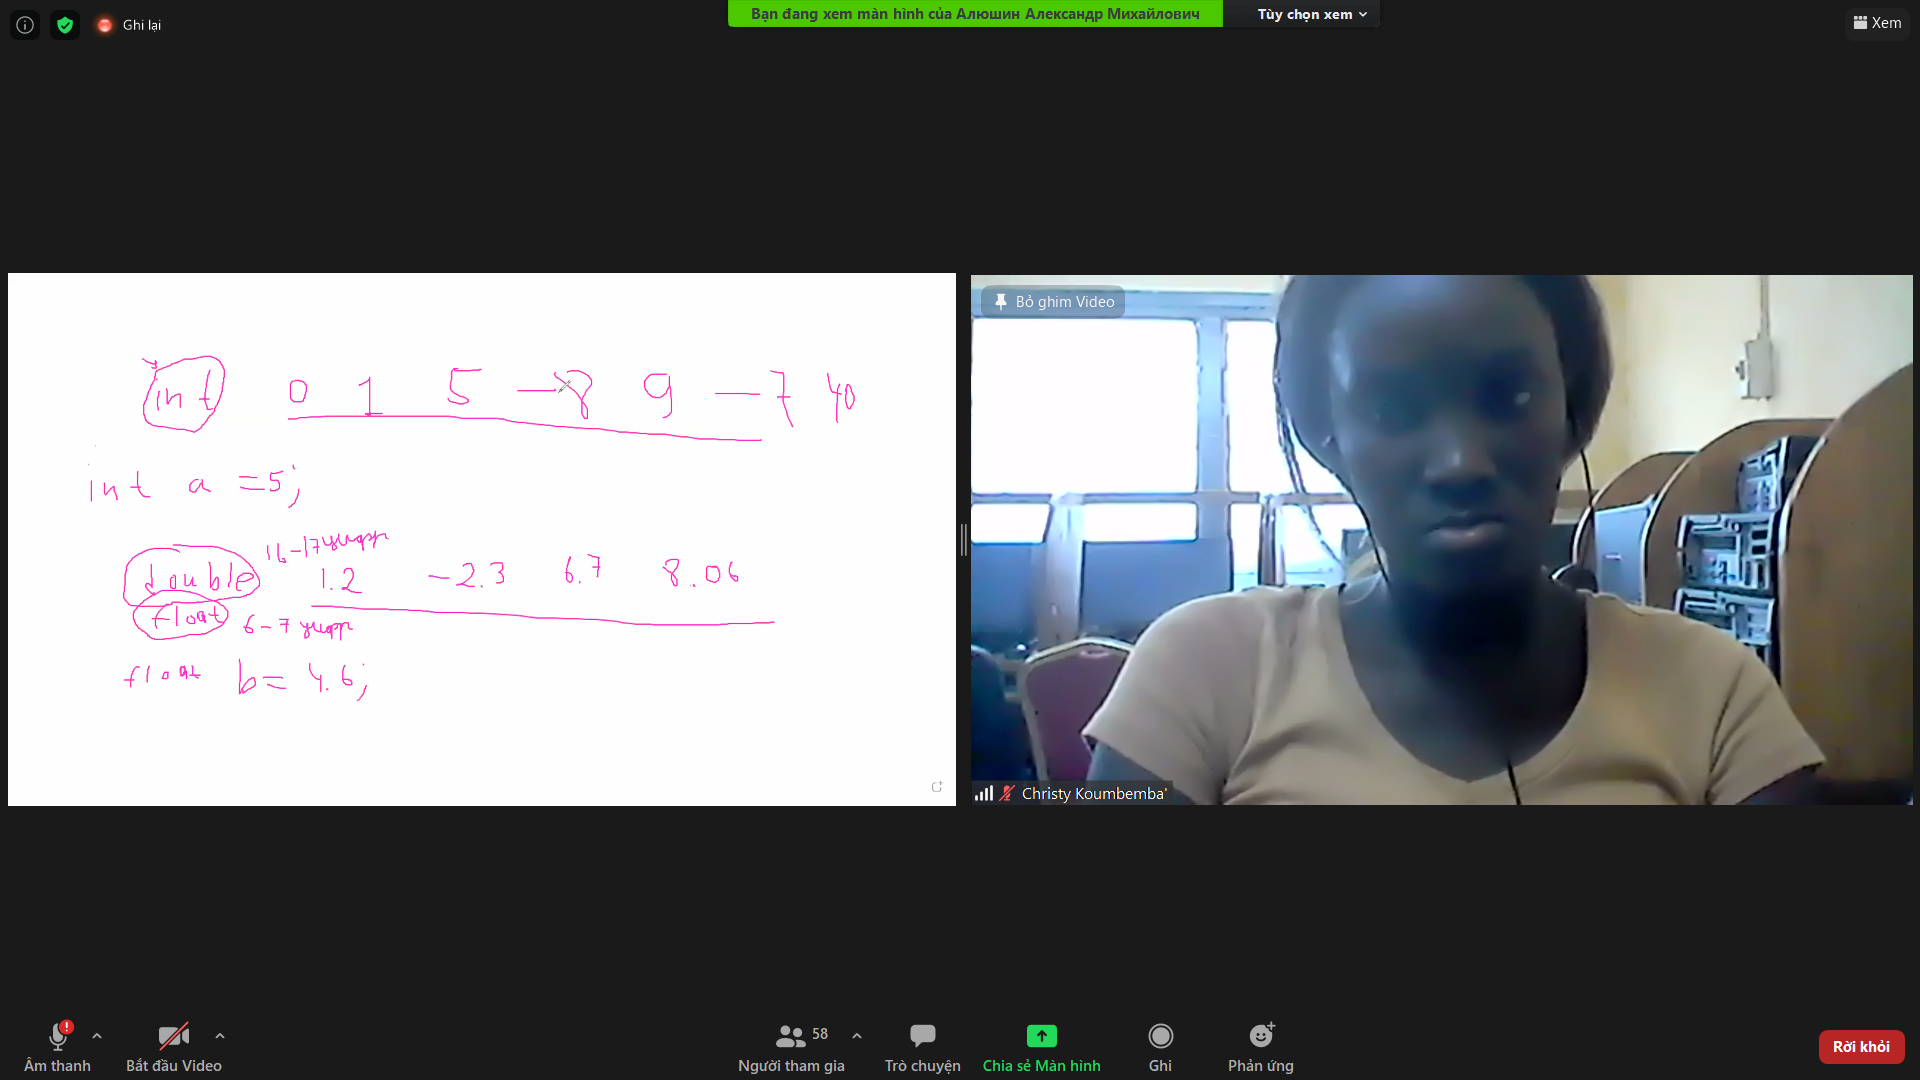 Ghi lại
Bạn đang xem màn hình của Алюшин Александр Михайлович
Tùy chọn xem
Xem
int 0 1 5 -8 9 -7 40
int a =5;
16-17 цифр
double 1.2 -2.3 6.7 8.06
float 6-7 цифр
float b= 4.6;
Bỏ ghim Video
Christy Koumbemba'
Âm thanh
Bắt đầu Video
58
Người tham gia
Trò chuyện
Chia sẻ Màn hình
Ghi
Phản ứng
Rời khỏi